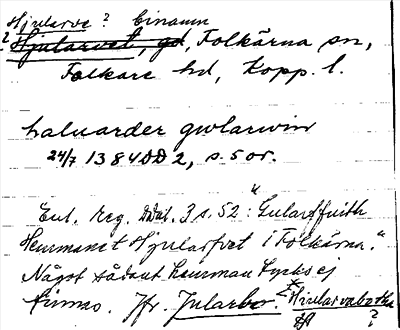 Hjularve? binamn
? Hjularvet, gd, Folkärna sn,
Folkare hd, Kopp. l.
haluarder gwlarwin
24/7 1384 DD 2, s. 5 or.
Enl. reg. DD 3 s. 52: "Gulardfwith
Hemmanet Hjularfvet i Folkärna."
Något sådant hemman tycks ej
finnas. Jfr. Jularbo. Hjularvabacka
?